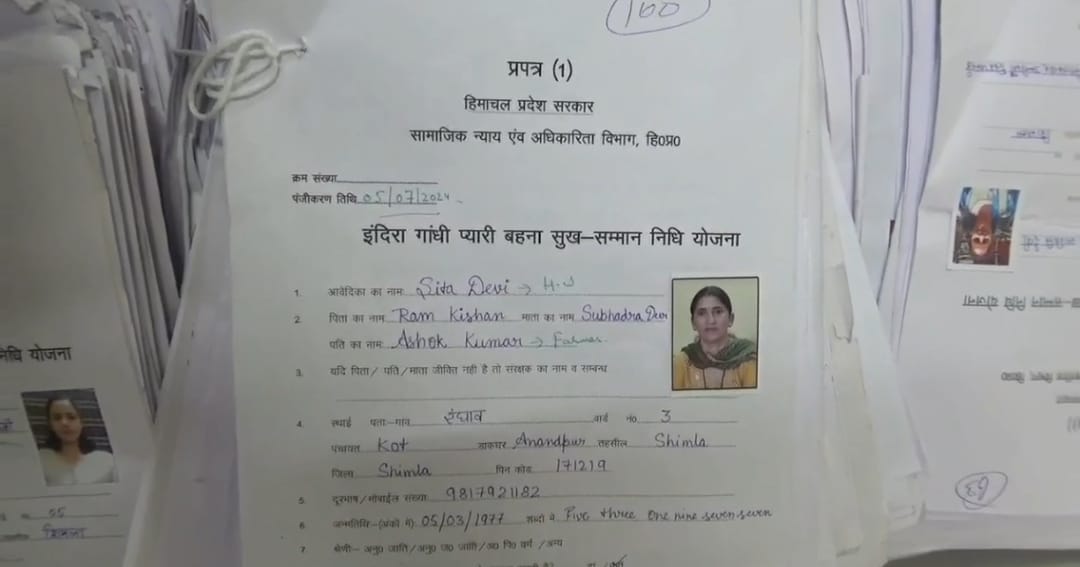 160
प्रपत्र (1)
हिमाचल प्रदेश सरकार
सामाजिक न्याय एंव अधिकारिता विभाग, हि0प्र0
क्रम संख्या
पंजीकरण तिथि 05/07/2024
इंदिरा गांधी प्यारी बहना सुख–सम्मान निधि योजना
1. आवेदिका का नाम: Sita Devi → H.W
2. पिता का नाम Ram Kishan माता का नाम Subhadra Devi
पति का नाम: Ashok Kumar → Farmer
3. यदि पिता/ पति/माता जीवित नही है तो संरक्षक का नाम व सम्बन्ध
4. स्थाई पता:–गाव वार्ड नं0 3
पंचायत Kot डाकघर Anandpur तहसील Shimla
जिला Shimla पिन कोड 171219
5. दूरभाष/मोबाईल संख्या 9817921182
6. जन्मतिथि–(अंको में) 05/03/1977 शब्दों में Five three one nine seven seven
7. श्रेणी– अनु0 जाति/अनु0 ज0 जाति/अ0 पि0 वर्ग /अन्य
निधि योजना
05
शिमला